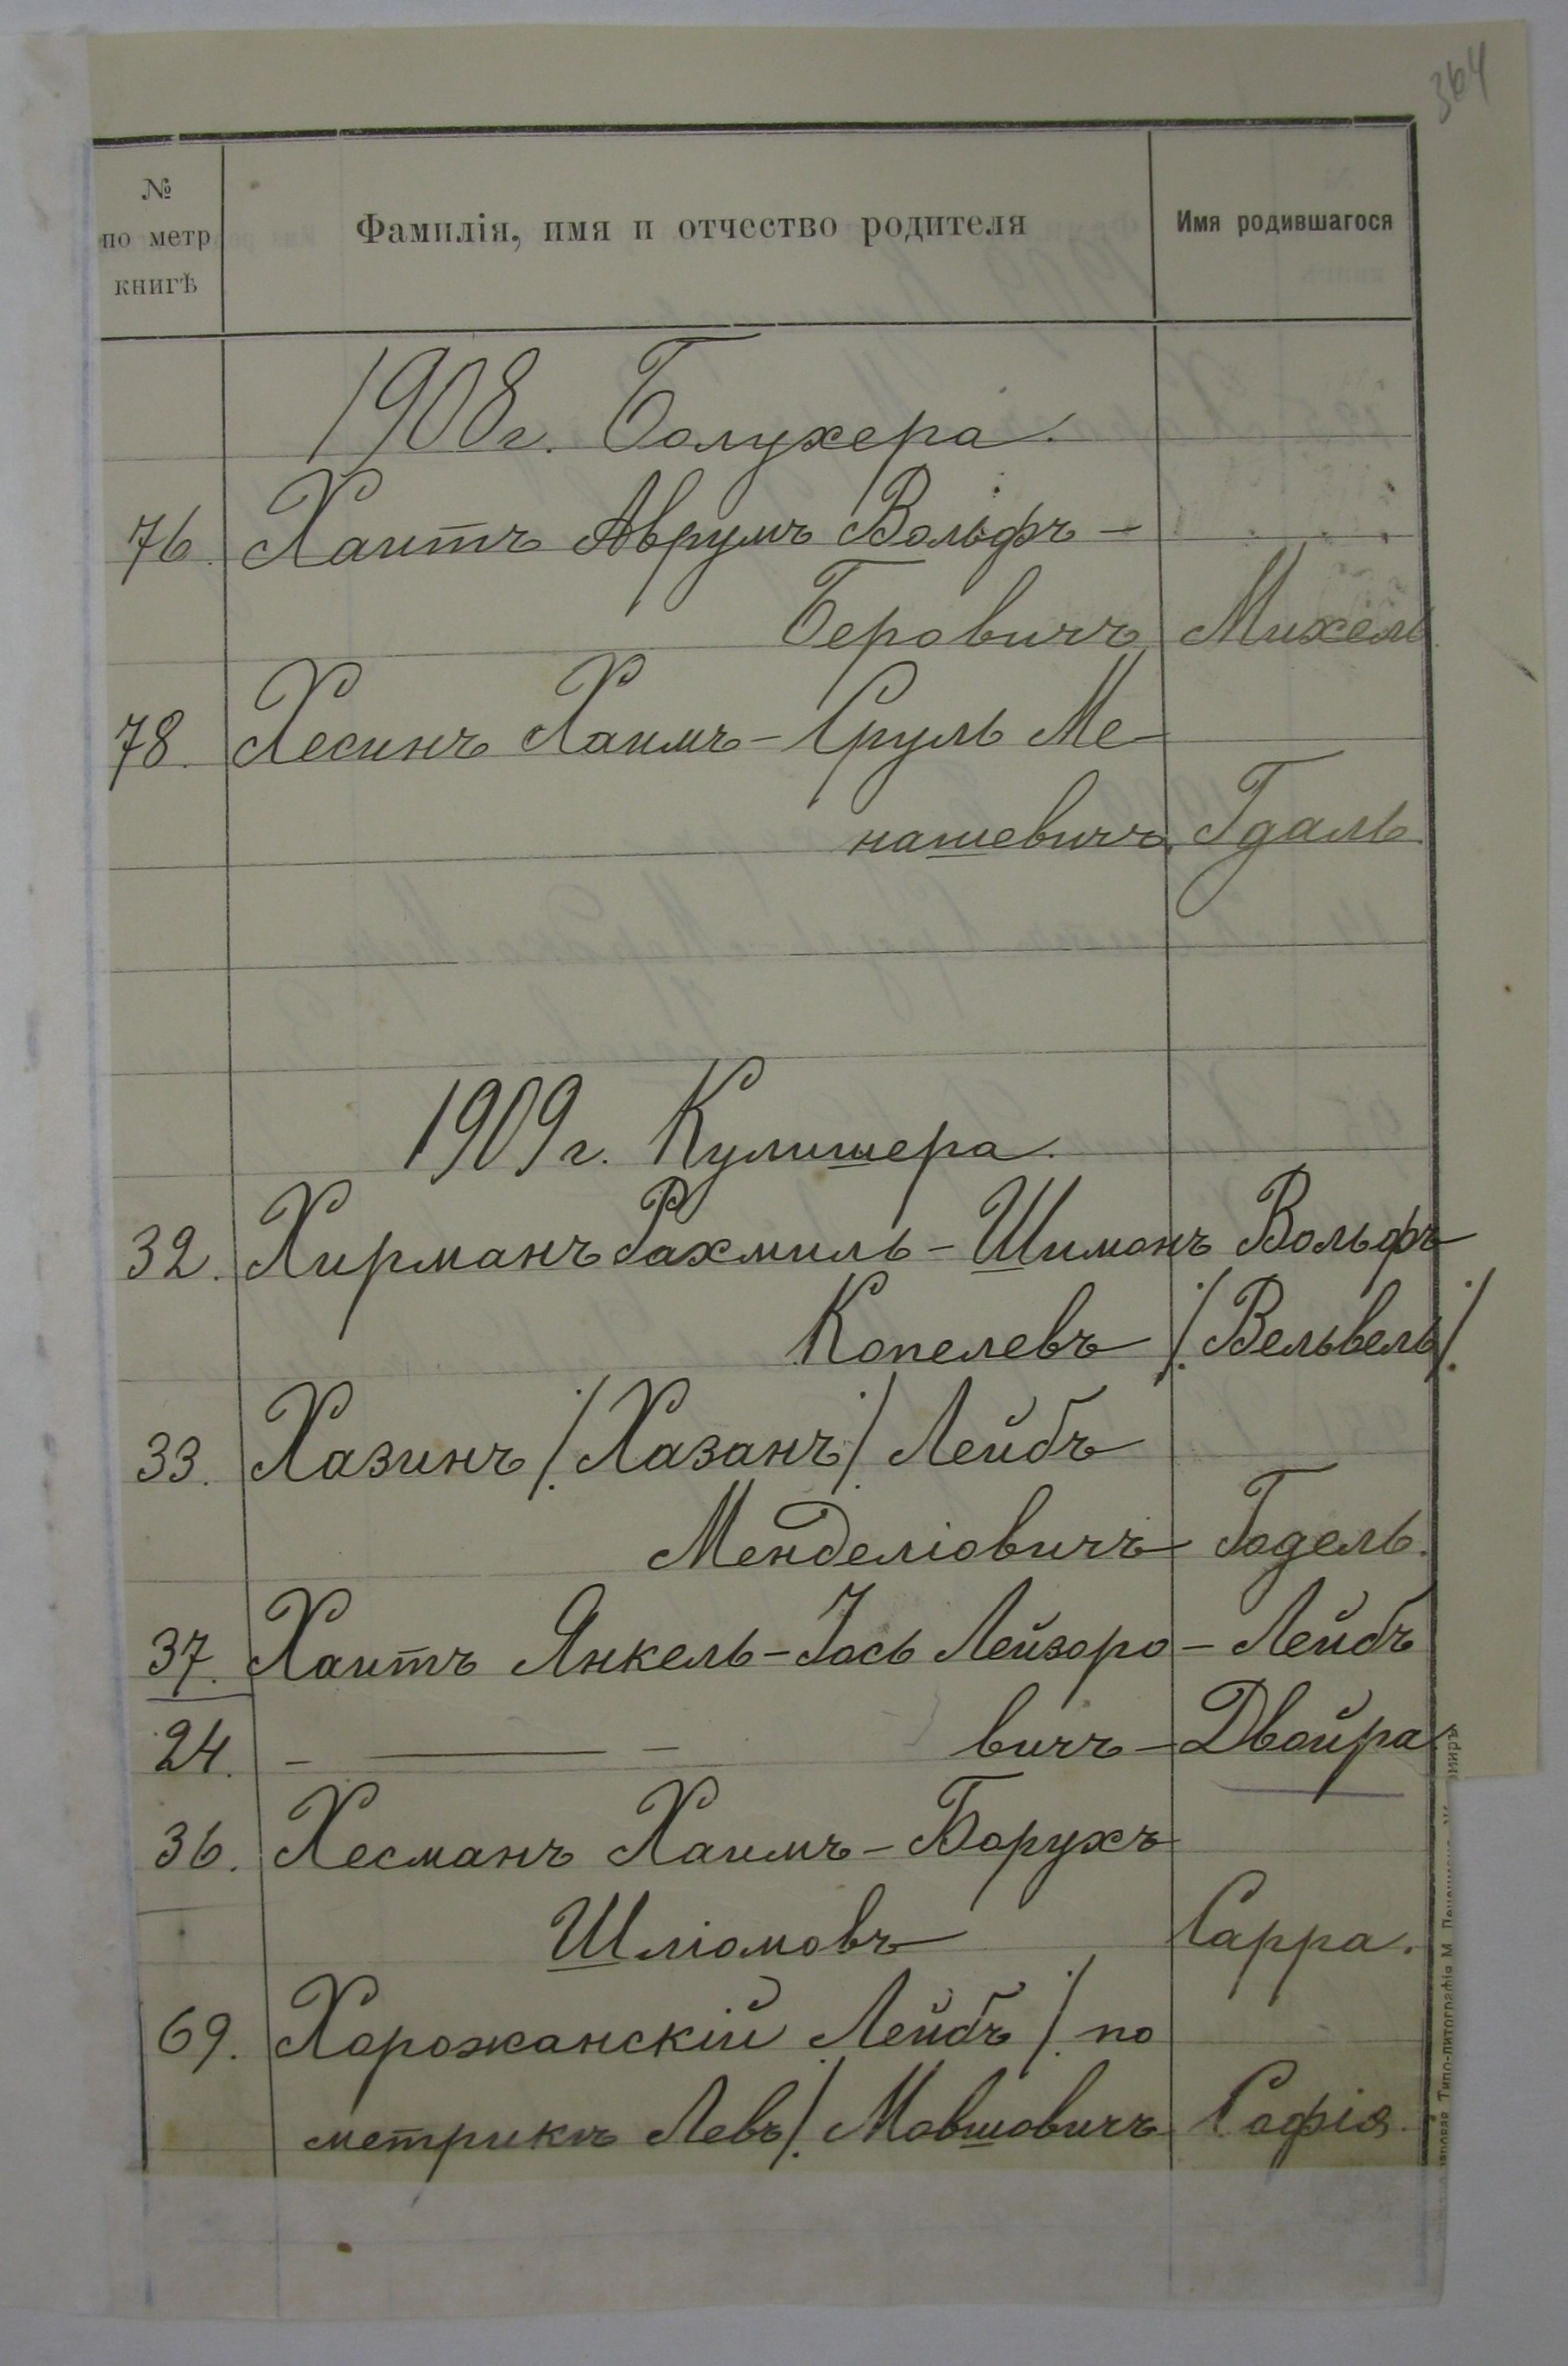 364
№
по метр
книгѣ
Фамилія, имя и отчество родителя
Имя родившагося
1908 г. Болухера.
76. Хаитъ Аврумъ Вольфъ-
Беровичъ Михель
78. Хесинъ Хаимъ-Сруль Ме-
нашевичъ Гдаль.
1909 г. Кулишера.
32. Хирманъ Рахмиль-Шимонъ Вольфъ
Копелевъ /Вельвель/
33. Хазинъ /Хазанъ/ Лейбъ
Менделіовичъ Годель.
37. Хаитъ Янкель-Іось Лейзоро- Лейбъ
24. - — - вичъ - Двойра
36. Хесманъ Хаимъ-Борухъ
Шліомовъ Сарра.
69. Хорожанскій Лейбъ /по
метрикѣ Левъ/ Мовшовичъ Софія.
Типо-литографія М.